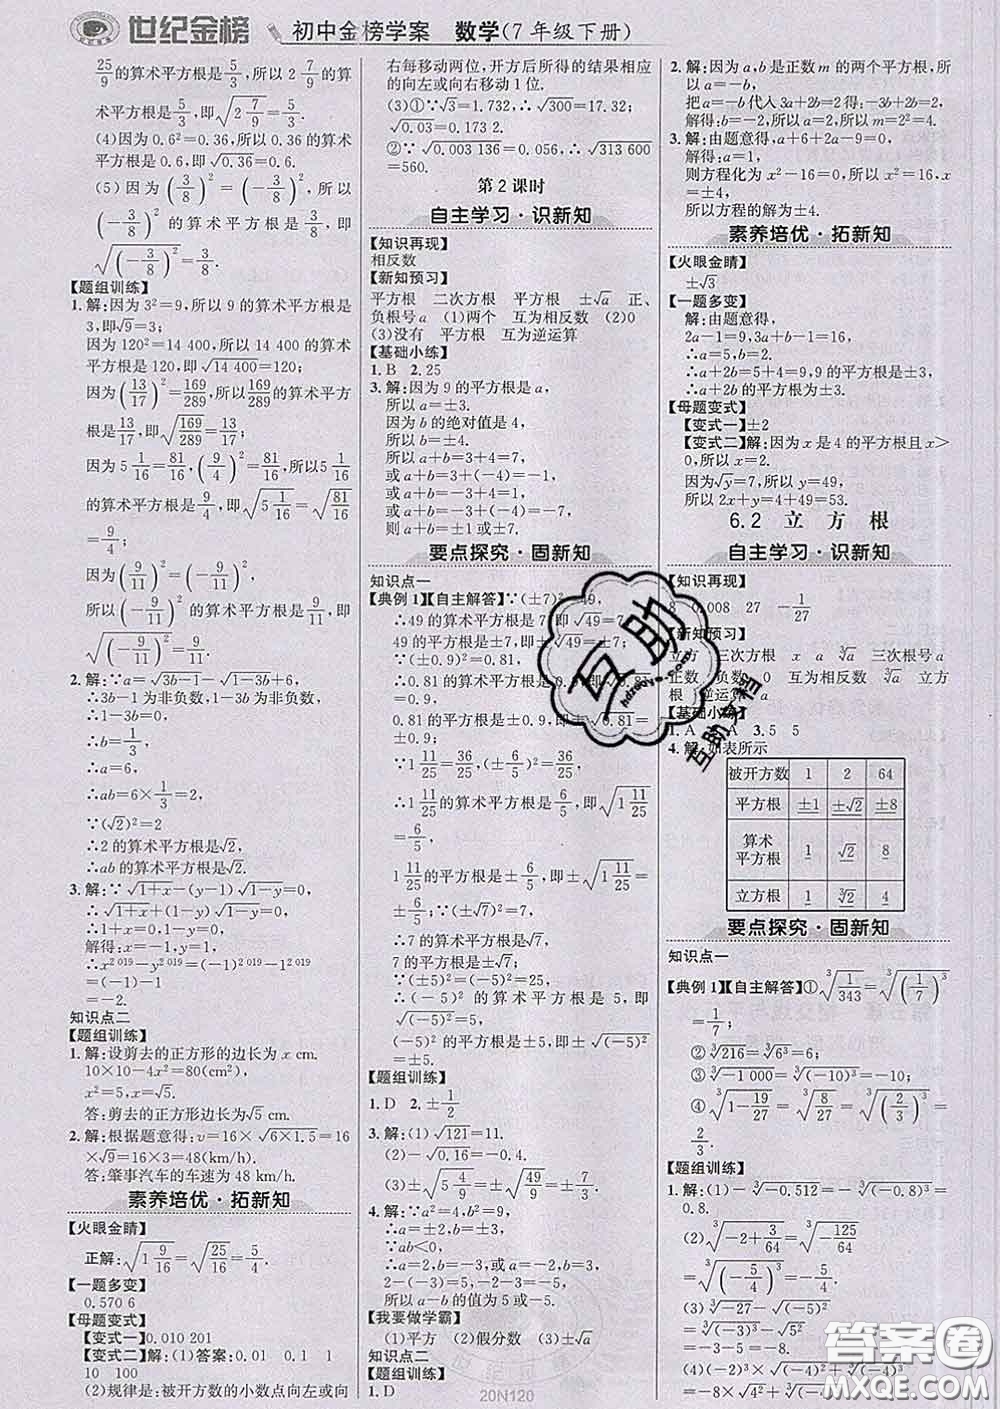 世纪金榜 初中金榜学案 数学(7年级下册)
25/9的算术平方根是5/3,所以2 7/9的算
术平方根是5/3,即√(2 7/9)=5/3.
(4)因为0.6²=0.36,所以0.36的算术
平方根是0.6,即√0.36=0.6.
(5)因为(3/8)²=(-3/8)²,所以
(-3/8)²的算术平方根是3/8,即
√((-3/8)²)=3/8.
【题组训练】
1.解:因为3²=9,所以9的算术平方根是
3,即√9=3;
因为120²=14 400,所以14 400的算术
平方根是120,即√14 400=120;
因为(13/17)²=169/289,所以169/289的算术平方
根是13/17,即√(169/289)=13/17;
因为5 1/16=81/16,(9/4)²=81/16,所以5 1/16
的算术平方根是9/4,即√(5 1/16)=√(81/16)
=9/4;
因为(9/11)²=(-9/11)²,
所以(-9/11)²的算术平方根是9/11,即
√((-9/11)²)=9/11.
2.解:∵a=√(3b-1)-√(1-3b)+6,
∴3b-1为非负数,1-3b为非负数,
∴1-3b=0,
∴b=1/3,
∴a=6,
∴ab=6×1/3=2,
∵(√2)²=2
∴2的算术平方根是√2,
∴ab的算术平方根是√2.
3.解:∵√(1+x)-(y-1)√(1-y)=0,
∴√(1+x)+(1-y)√(1-y)=0,
∴1+x=0,1-y=0,
解得:x=-1,y=1,
∴x^2 019-y^2 019=(-1)^2 019-1^2 019=-1-1
=-2.
知识点二
【题组训练】
1.解:设剪去的正方形的边长为x cm.
10×10-4x²=80(cm²),
x²=5,x=√5.
答:剪去的正方形边长为√5 cm.
2.解:根据题意得:v=16×√(6×1.5)=16
×√9=16×3=48(km/h),
答:肇事汽车的车速为48 km/h.
素养培优·拓新知
【火眼金睛】
正解:√(1 9/16)=√(25/16)=5/4.
【一题多变】
0.570 6
【母题变式】
【变式一】0.010 201
【变式二】解:(1)答案:0.01 0.1 1
10 100
(2)规律是:被开方数的小数点向左或向
右每移动两位,开方后所得的结果相应
的向左或向右移动1位.
(3)①∵√3=1.732,∴√300=17.32,
√0.03=0.173 2.
②∵√0.003 136=0.056,∴√313 600
=560.
第2课时
自主学习·识新知
【知识再现】
相反数
【新知预习】
平方根 二次方根 平方根 ±√a 正、
负根号a (1)两个 互为相反数 (2)0
(3)没有 平方根 互为逆运算
【基础小练】
1.B 2.25
3.解:因为9的平方根是a,
所以a=±3.
因为b的绝对值是4,
所以b=±4.
所以a+b=3+4=7,
或a+b=3+(-4)=-1,
或a+b=-3+4=1,
或a+b=-3+(-4)=-7,
则a+b=±1或±7.
要点探究·固新知
知识点一
【典例1】【自主解答】∵(±7)²=49,
∴49的算术平方根是7,即√49=7,
49的平方根是±7,即±√49=±7;
∵(±0.9)²=0.81,
∴0.81的算术平方根是0.9,即√0.81=
0.9,
0.81的平方根是±0.9,即±√0.81=
±0.9;
∵1 11/25=36/25,(±6/5)²=36/25,
∴1 11/25的算术平方根是6/5,即√(1 11/25)
=6/5,
1 11/25的平方根是±6/5,即±√(1 11/25)=
±6/5;
∵(±√7)²=7,
∴7的算术平方根是√7,
7的平方根是±√7;
∵(-5)²=(±5)²,
∴(-5)²的算术平方根是5,即
√((-5)²)=5,
(-5)²的平方根是±5,即±√((-5)²)=
±5.
【题组训练】
1.D 2.±1/2
3.解:(1)√121=11.
(2)-√0.49=-0.7.
(3)±√(4/81)=±2/9.
4.解:∵a²=4,b²=9,
∴a=±2,b=±3,
∵ab<0,
∴a=2,b=-3或a=-2,b=3,
2-(-3)=5,-2-3=-5,
所以a-b的值为5或-5.
【我要做学霸】
(1)平方 (2)假分数 (3)±√a
知识点二
【题组训练】
1.D
2.解:因为a,b是正数m的两个平方根,所
以a=-b,
把a=-b代入3a+2b=2得:-3b+2b=2,
解得:b=-2,所以a=2,所以m=2²=4.
3.解:由题意得,a+6+2a-9=0,
解得:a=1,
则方程化为x²-16=0,所以x²=16,x=
±4,
所以方程的解为±4.
素养培优·拓新知
【火眼金睛】
±√3
【一题多变】
解:由题意得,
2a-1=9,3a+b-1=16,
∴a=5,b=2,
∴a+2b=5+4=9,9的平方根是±3,
∴a+2b的平方根为±3.
【母题变式】
【变式一】±2
【变式二】解:因为x是4的平方根且x>
0,所以x=2.
因为√y=7,所以y=49,
所以2x+y=4+49=53.
6.2 立方根
自主学习·识新知
【知识再现】
8 0.008 27 -1/27
【新知预习】
立方 三次方根 x a ∛a 三次根号a
正数 负数 0 互为相反数 ∛a 立方
根 逆运算 a
【基础小练】
1.A A 3.5 5
4.解:如表所示
被开方数 1 2 64
平方根 ±1 ±√2 ±8
算术
平方根 1 √2 8
立方根 1 ∛2 4
要点探究·固新知
知识点一
【典例1】【自主解答】①∛(1/343)=∛((1/7)³)
=1/7;
②∛216=∛(6³)=6;
③∛(-1 000)=∛((-10)³)=-10;
④∛(1-19/27)=∛(8/27)=∛((2/3)³)=
2/3.
【题组训练】
1.解:(1)-∛(-0.512)=-∛((-0.8)³)=
0.8.
(2)∛(-2+3/64)=∛(-125/64)
=∛((-5/4)³)=-5/4.
(3)∛(-27)=∛((-3)³)
=-3.
=-8×√4=-8×2=
互助
hdzuoye.com
互助文档
答案圈
MXQE.COM
20N120